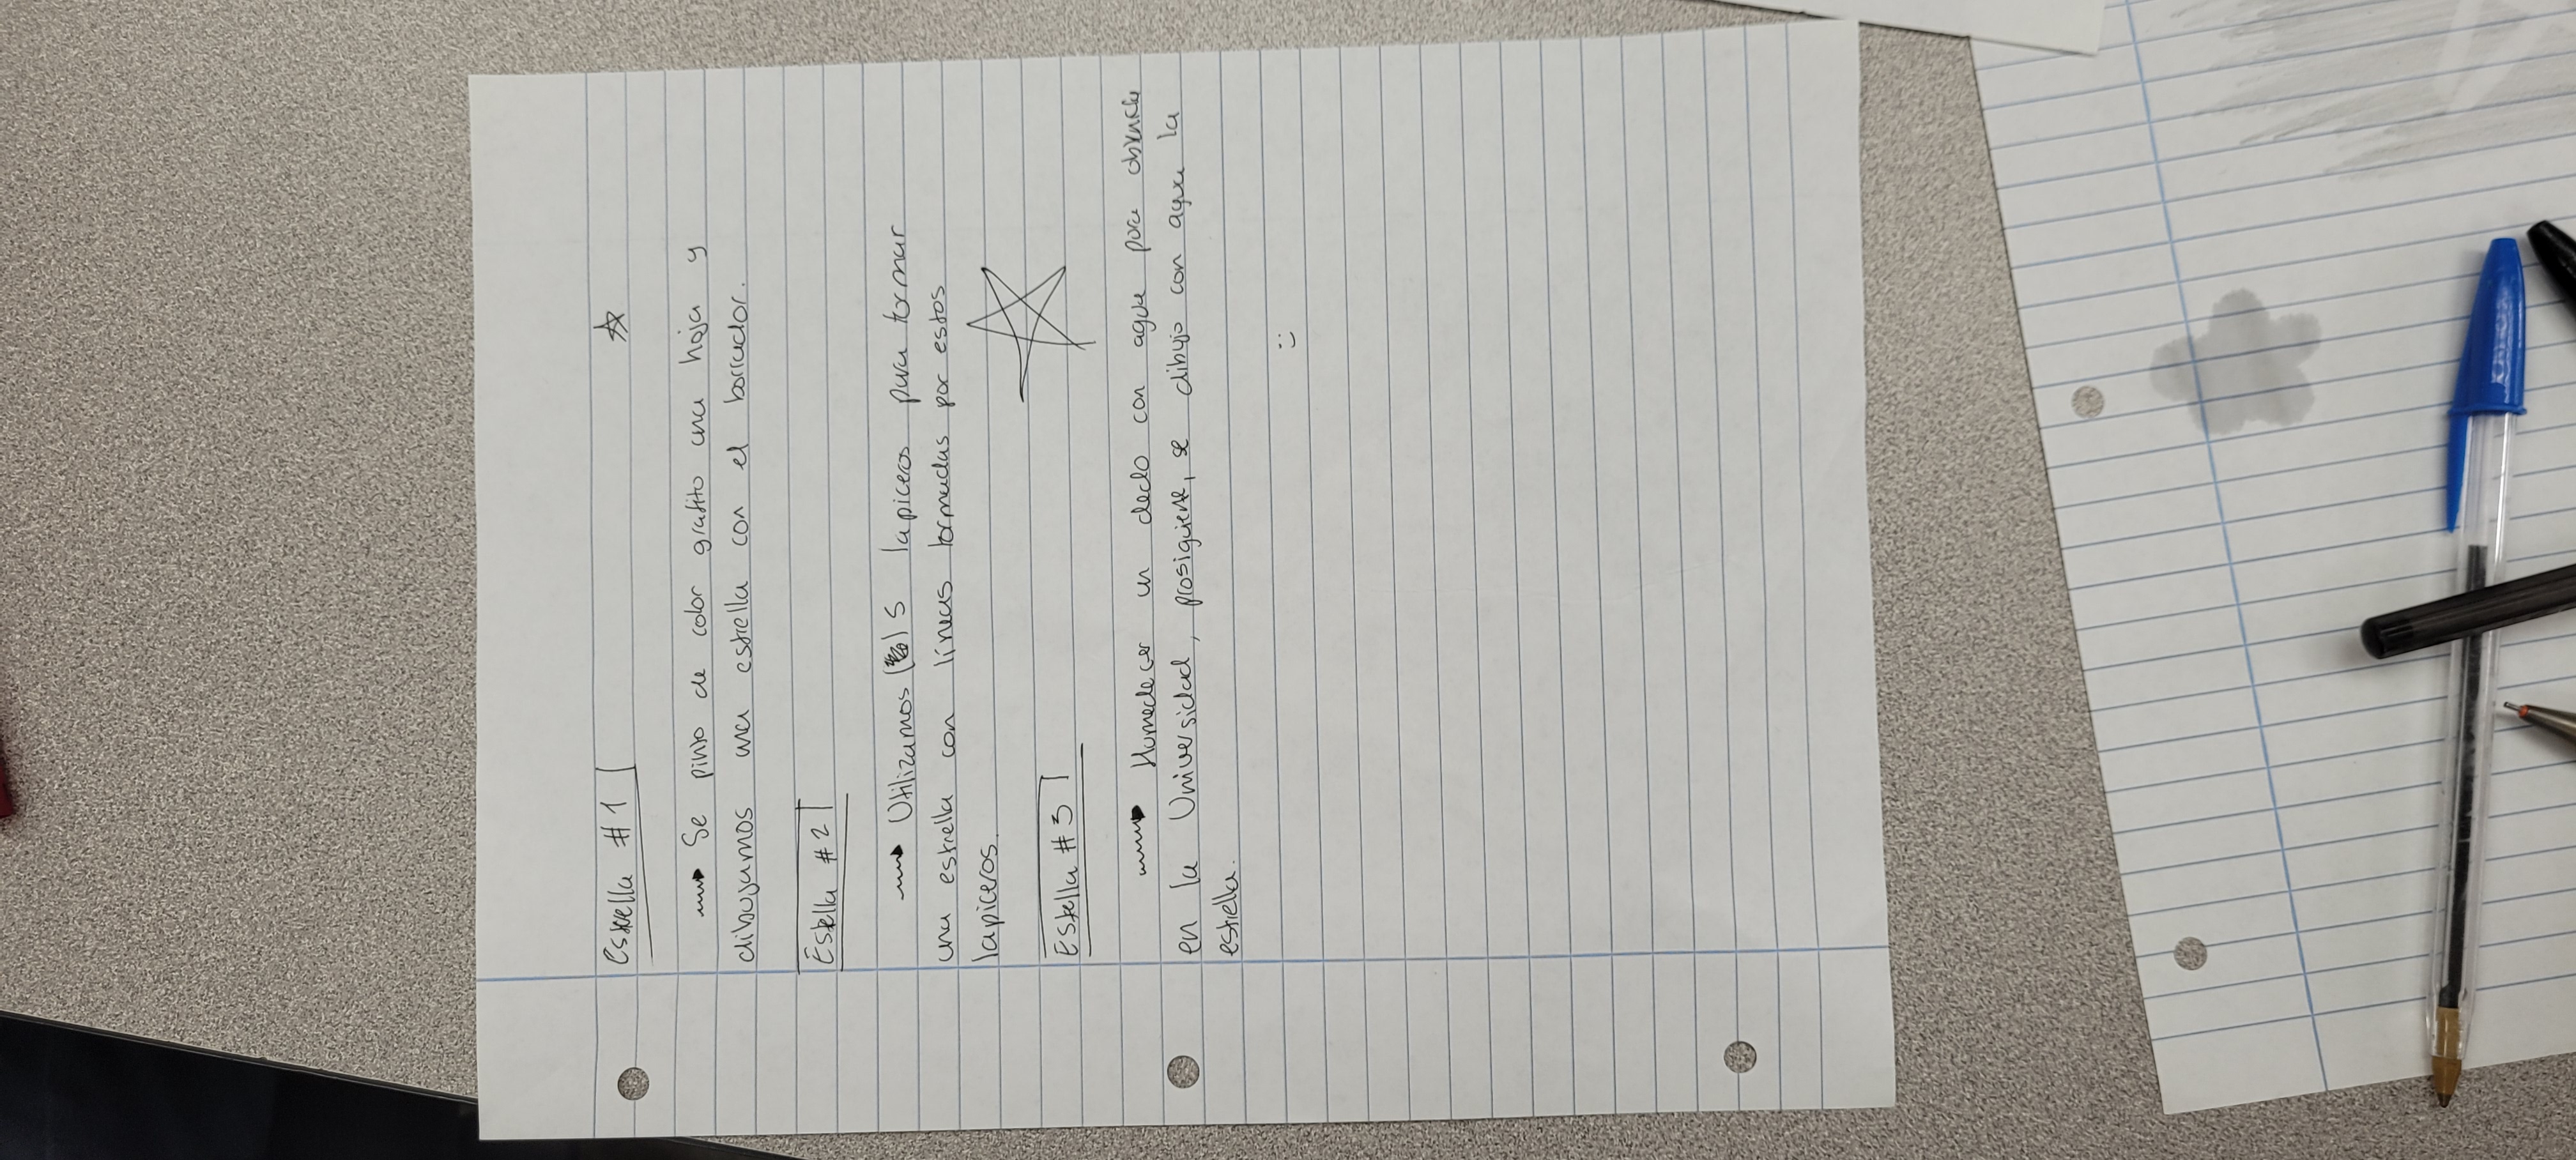 Estrella #1
Se pinto de color grafito una hoja y
dibujamos una estrella con el borrador.
Estella #2
Utilizamos ( ) 5 lapiceros para formar
una estrella con líneas formadas por estos
lapiceros.
Estella #3
Humedecer un dedo con agua pura obtenida
en la Universidad, prosiguiente, se dibujo con agua la
estrella.